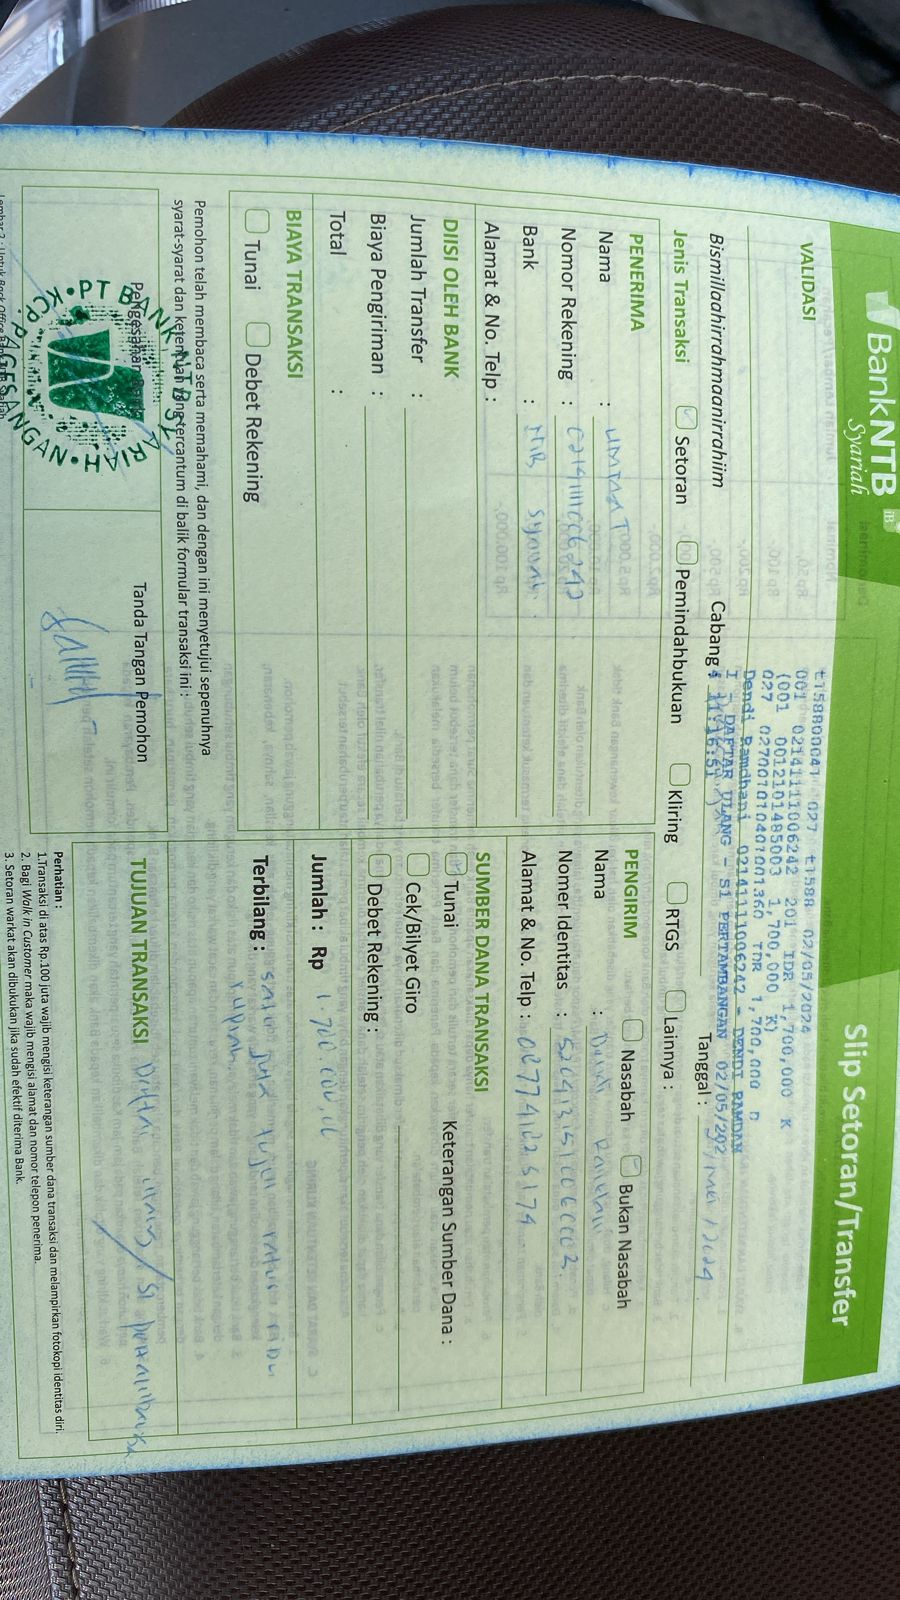 BankNTB iB
Syariah
Slip Setoran/Transfer
VALIDASI
t158800041 027 t1588 02/05/2024
001 0214111006242 201 IDR 1,700,000 K
(001 0012101485003 1,700,000 K)
027 0270070104070013​60 IDR 1,700,000 D
Dendi Ramdhani 0214111006242 - DENDI RAMDAN
I - DAFTAR ULANG - S1 PERTAMBANGAN 02/05/202
4 11:16:51
Bismillaahirrahmaanirrahiim
Cabang :
Tanggal : / mei / 2024
Jenis Transaksi Setoran Pemindahbukuan Kliring RTGS Lainnya :
PENERIMA
Nama : UMMAT
Nomor Rekening : 0214111006242
Bank : NTB Syariah
Alamat & No. Telp :
PENGIRIM Nasabah Bukan Nasabah
Nama : Dendi Ramdani
Nomer Identitas : 5204131510060003
Alamat & No. Telp : 087741223174
DIISI OLEH BANK
Jumlah Transfer :
Biaya Pengiriman :
Total :
SUMBER DANA TRANSAKSI
Tunai Keterangan Sumber Dana :
Cek/Bilyet Giro
Debet Rekening :
BIAYA TRANSAKSI
Tunai Debet Rekening
Jumlah : Rp 1.700.000,00
Terbilang : satu juta tujuh ratus ribu
rupiah.
Pemohon telah membaca serta memahami, dan dengan ini menyetujui sepenuhnya
syarat-syarat dan ketentuan yang tercantum di balik formular transaksi ini :
Pengesahan
Tanda Tangan Pemohon
PT BANK NTB SYARIAH
KCP. PAGESANGAN
TUJUAN TRANSAKSI Daftar ulang / S1 pertambangan
Perhatian :
1.Transaksi di atas Rp.100 juta wajib mengisi keterangan sumber dana transaksi dan melampirkan fotokopi identitas diri.
2. Bagi Walk in Customer maka wajib mengisi alamat dan nomor telepon penerima.
3. Setoran warkat akan dibukukan jika sudah efektif diterima Bank.